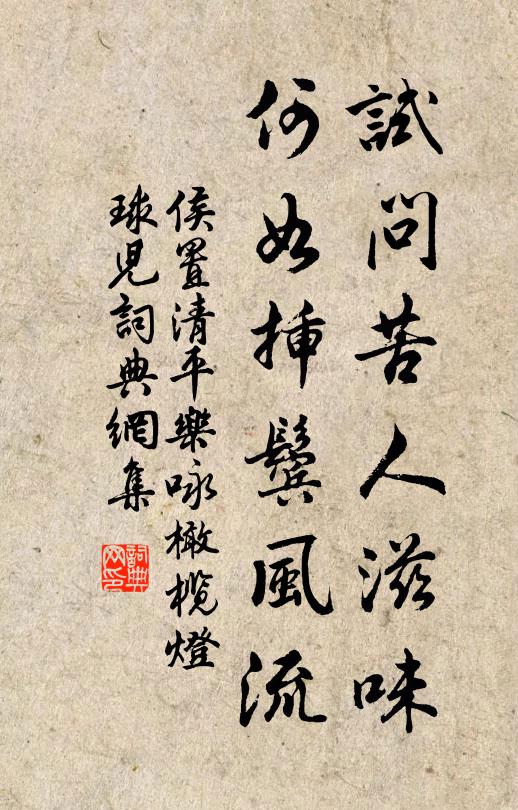 試問苦人滋味
何如插鬢風流
侯置清平樂咏橄欖燈
球兒詞典網集
詞典
网印